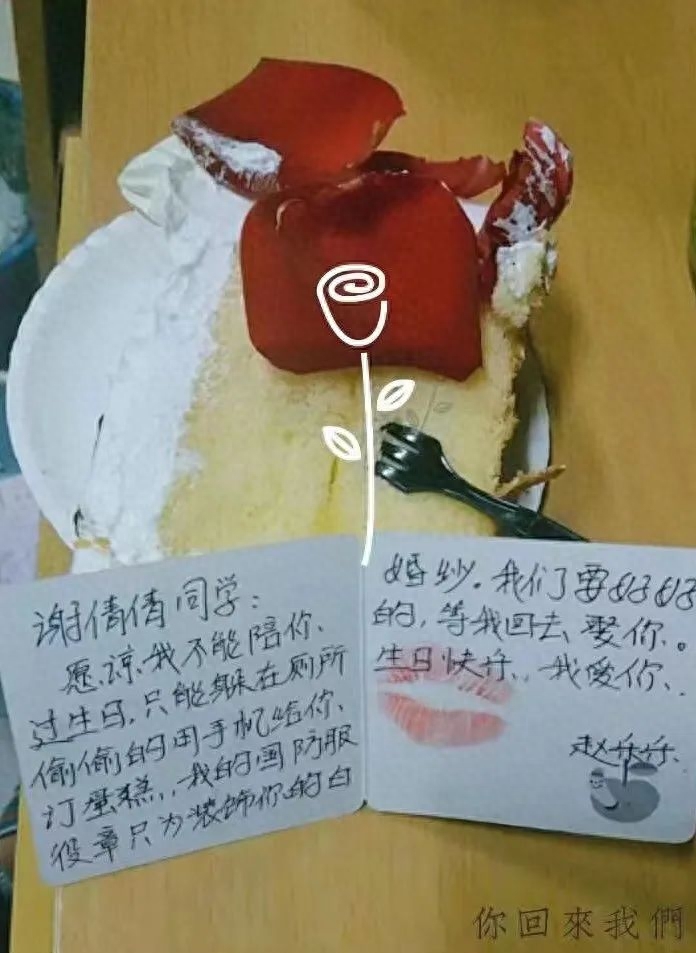 谢倩倩同学：
愿谅我不能陪你、
过生日，只能躲在厕所
偷偷的用手机给你、
订蛋糕，我的国防服
役章只为装饰你的白
婚纱。我们要好好
的，等我回去娶你。
生日快乐，我爱你、
赵乐乐
你回來我們